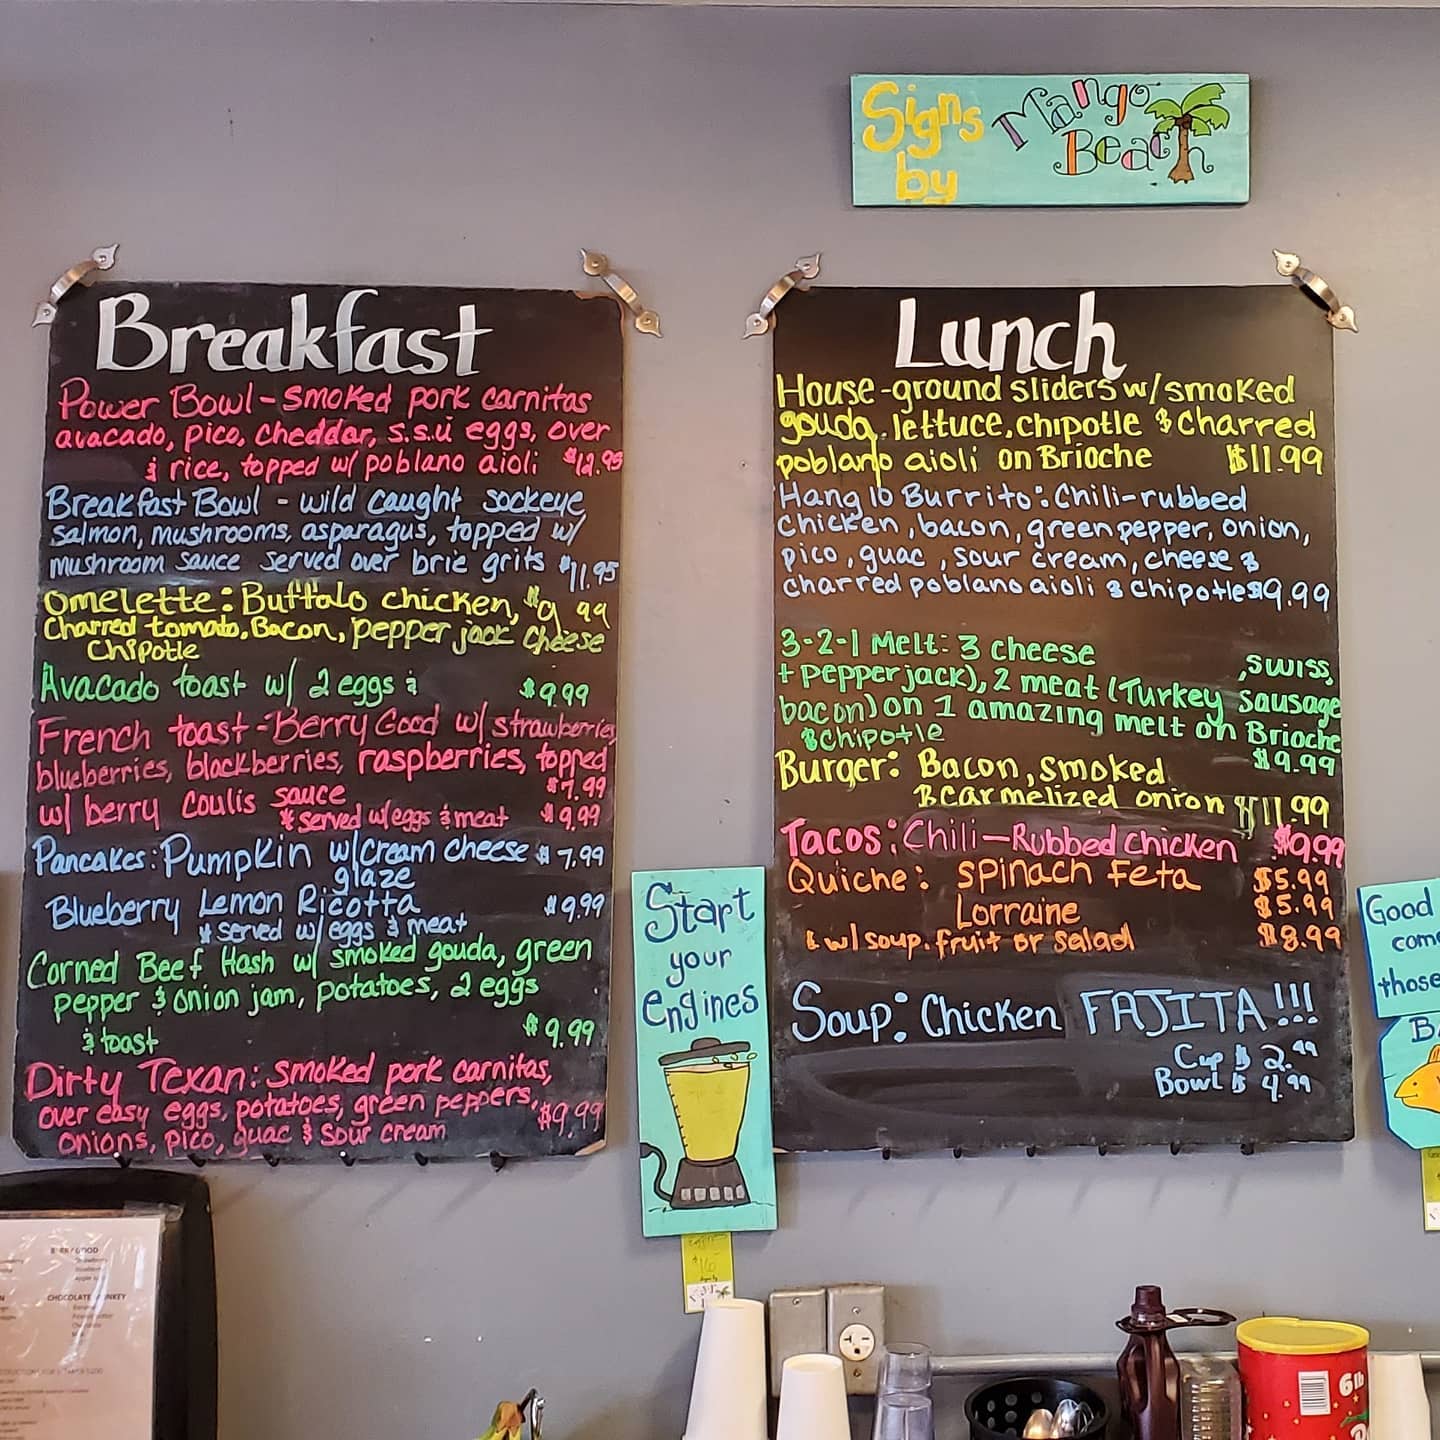 Signs by Mango Beach
Breakfast
Power Bowl - smoked pork carnitas
avacado, pico, cheddar, s.s.u eggs, over
& rice, topped w/ poblano aioli $12.95
Breakfast Bowl - wild caught sockeye
salmon, mushrooms, asparagus, topped w/
mushroom sauce served over brie grits $11.95
Omelette: Buffalo chicken, $9.99
Charred tomato, Bacon, pepper jack cheese
Chipotle
Avacado toast w/ 2 eggs & $9.99
French toast - Berry Good w/ strawberries
blueberries, blackberries, raspberries, topped
w/ berry coulis sauce $7.99
* served w/ eggs & meat $9.99
Pancakes: Pumpkin w/ cream cheese $7.99
glaze
Blueberry Lemon Ricotta $9.99
* served w/ eggs & meat
Corned Beef Hash w/ smoked gouda, green
pepper & onion jam, potatoes, 2 eggs
& toast $9.99
Dirty Texan: smoked pork carnitas,
over easy eggs, potatoes, green peppers, $9.99
onions, pico, guac & sour cream
Lunch
House-ground sliders w/ smoked
gouda, lettuce, chipotle & charred
poblano aioli on Brioche $11.99
Hang 10 Burrito: Chili-rubbed
chicken, bacon, green pepper, onion,
pico, guac, sour cream, cheese &
charred poblano aioli & chipotle $9.99
3-2-1 Melt: 3 cheese , swiss,
+ pepper jack), 2 meat (Turkey sausage
bacon) on 1 amazing melt on Brioche
& chipotle $9.99
Burger: Bacon, smoked
& carmelized onion $11.99
Tacos: Chili-Rubbed Chicken $9.99
Quiche: Spinach Feta $5.99
Lorraine $5.99
& w/ soup, fruit or salad $8.99
Soup: Chicken FAJITA!!!
Cup $2.99
Bowl $4.99
Start
your
engines
Good
come
those
BERRY GOOD
CHOCOLATE MONKEY
6lb